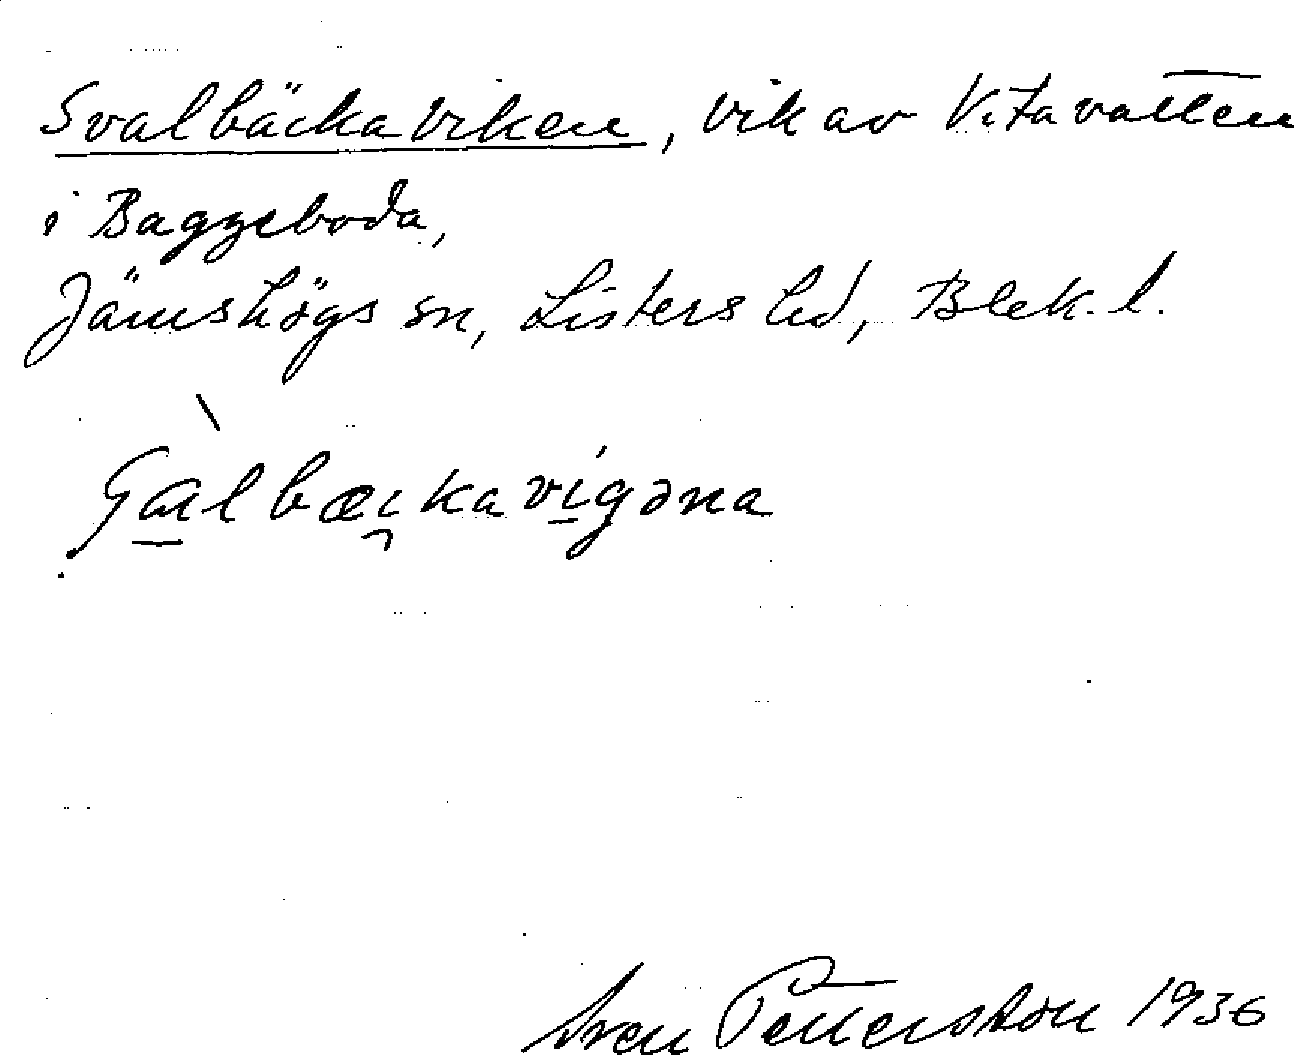 Svalbäckaviken, vik av Vitavatten
i Baggeboda,
Jämshögs sn, Listers hd, Blek. l.
Sven Pettersson 1936